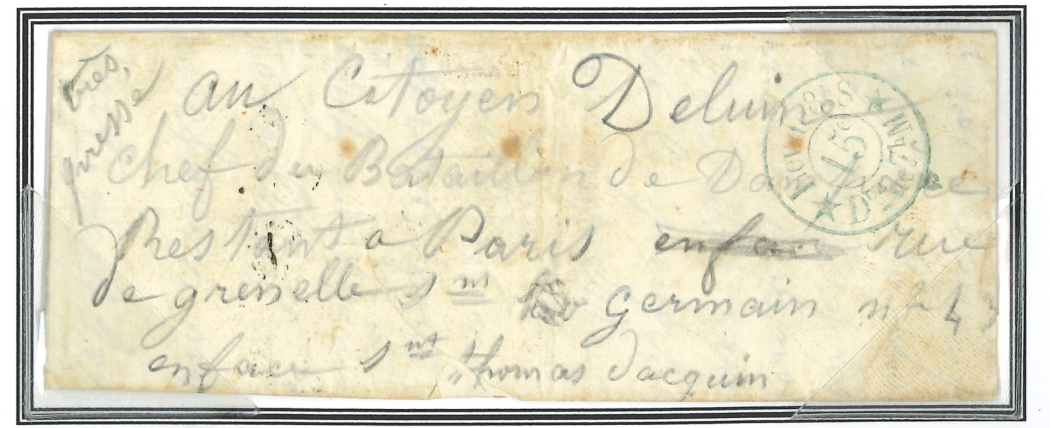 très,
pressé
au Citoyen Deluine
Chef du Bataillon de
Restant a Paris enface rue
de grenelle snt germain n° 43
enface snt thomas dacquin
15c